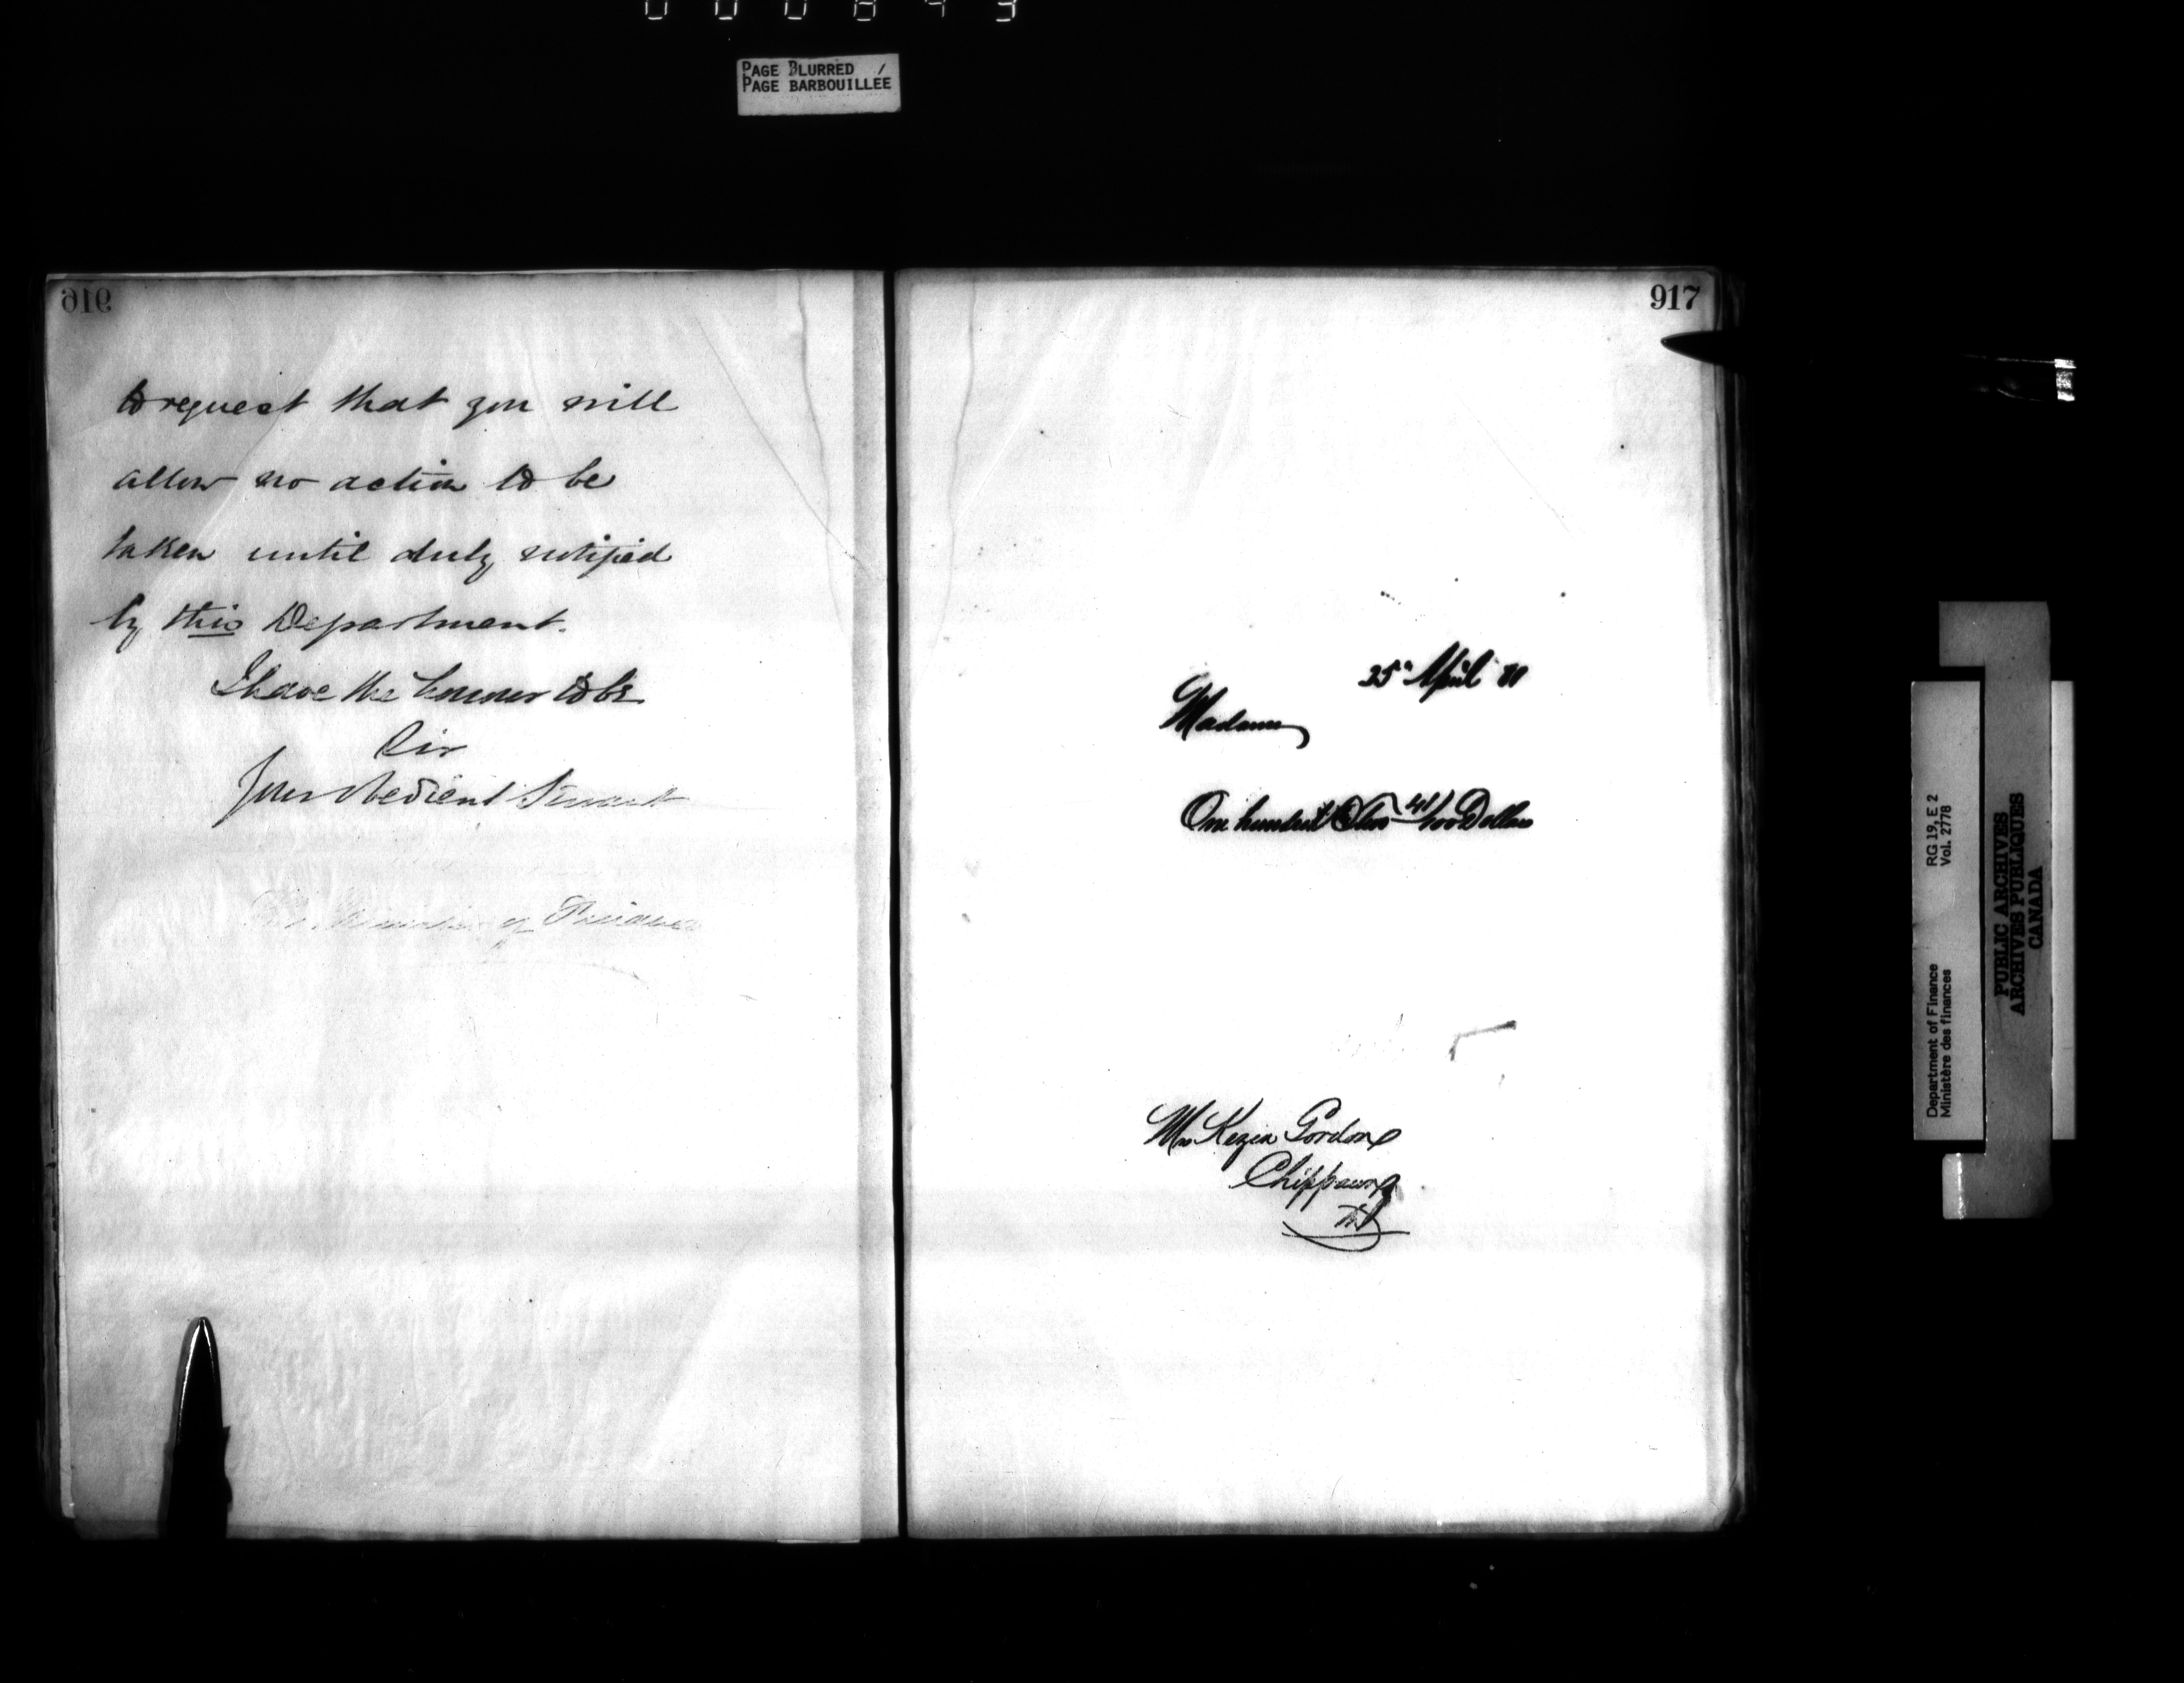 PAGE BLURRED /
PAGE BARBOUILLÉE
916
to request that you will
allow no action to be
taken until duly notified
by this Department.
I have the honor to be
Sir
Your obedient Servant
of Finance
917
25th April
Madam
One hundred & two 41/100 Dollars
Mrs Kezia Gordon
Chippawa
Department of Finance RG 19, E 2
Ministère des finances Vol. 2778
PUBLIC ARCHIVES
ARCHIVES PUBLIQUES
CANADA